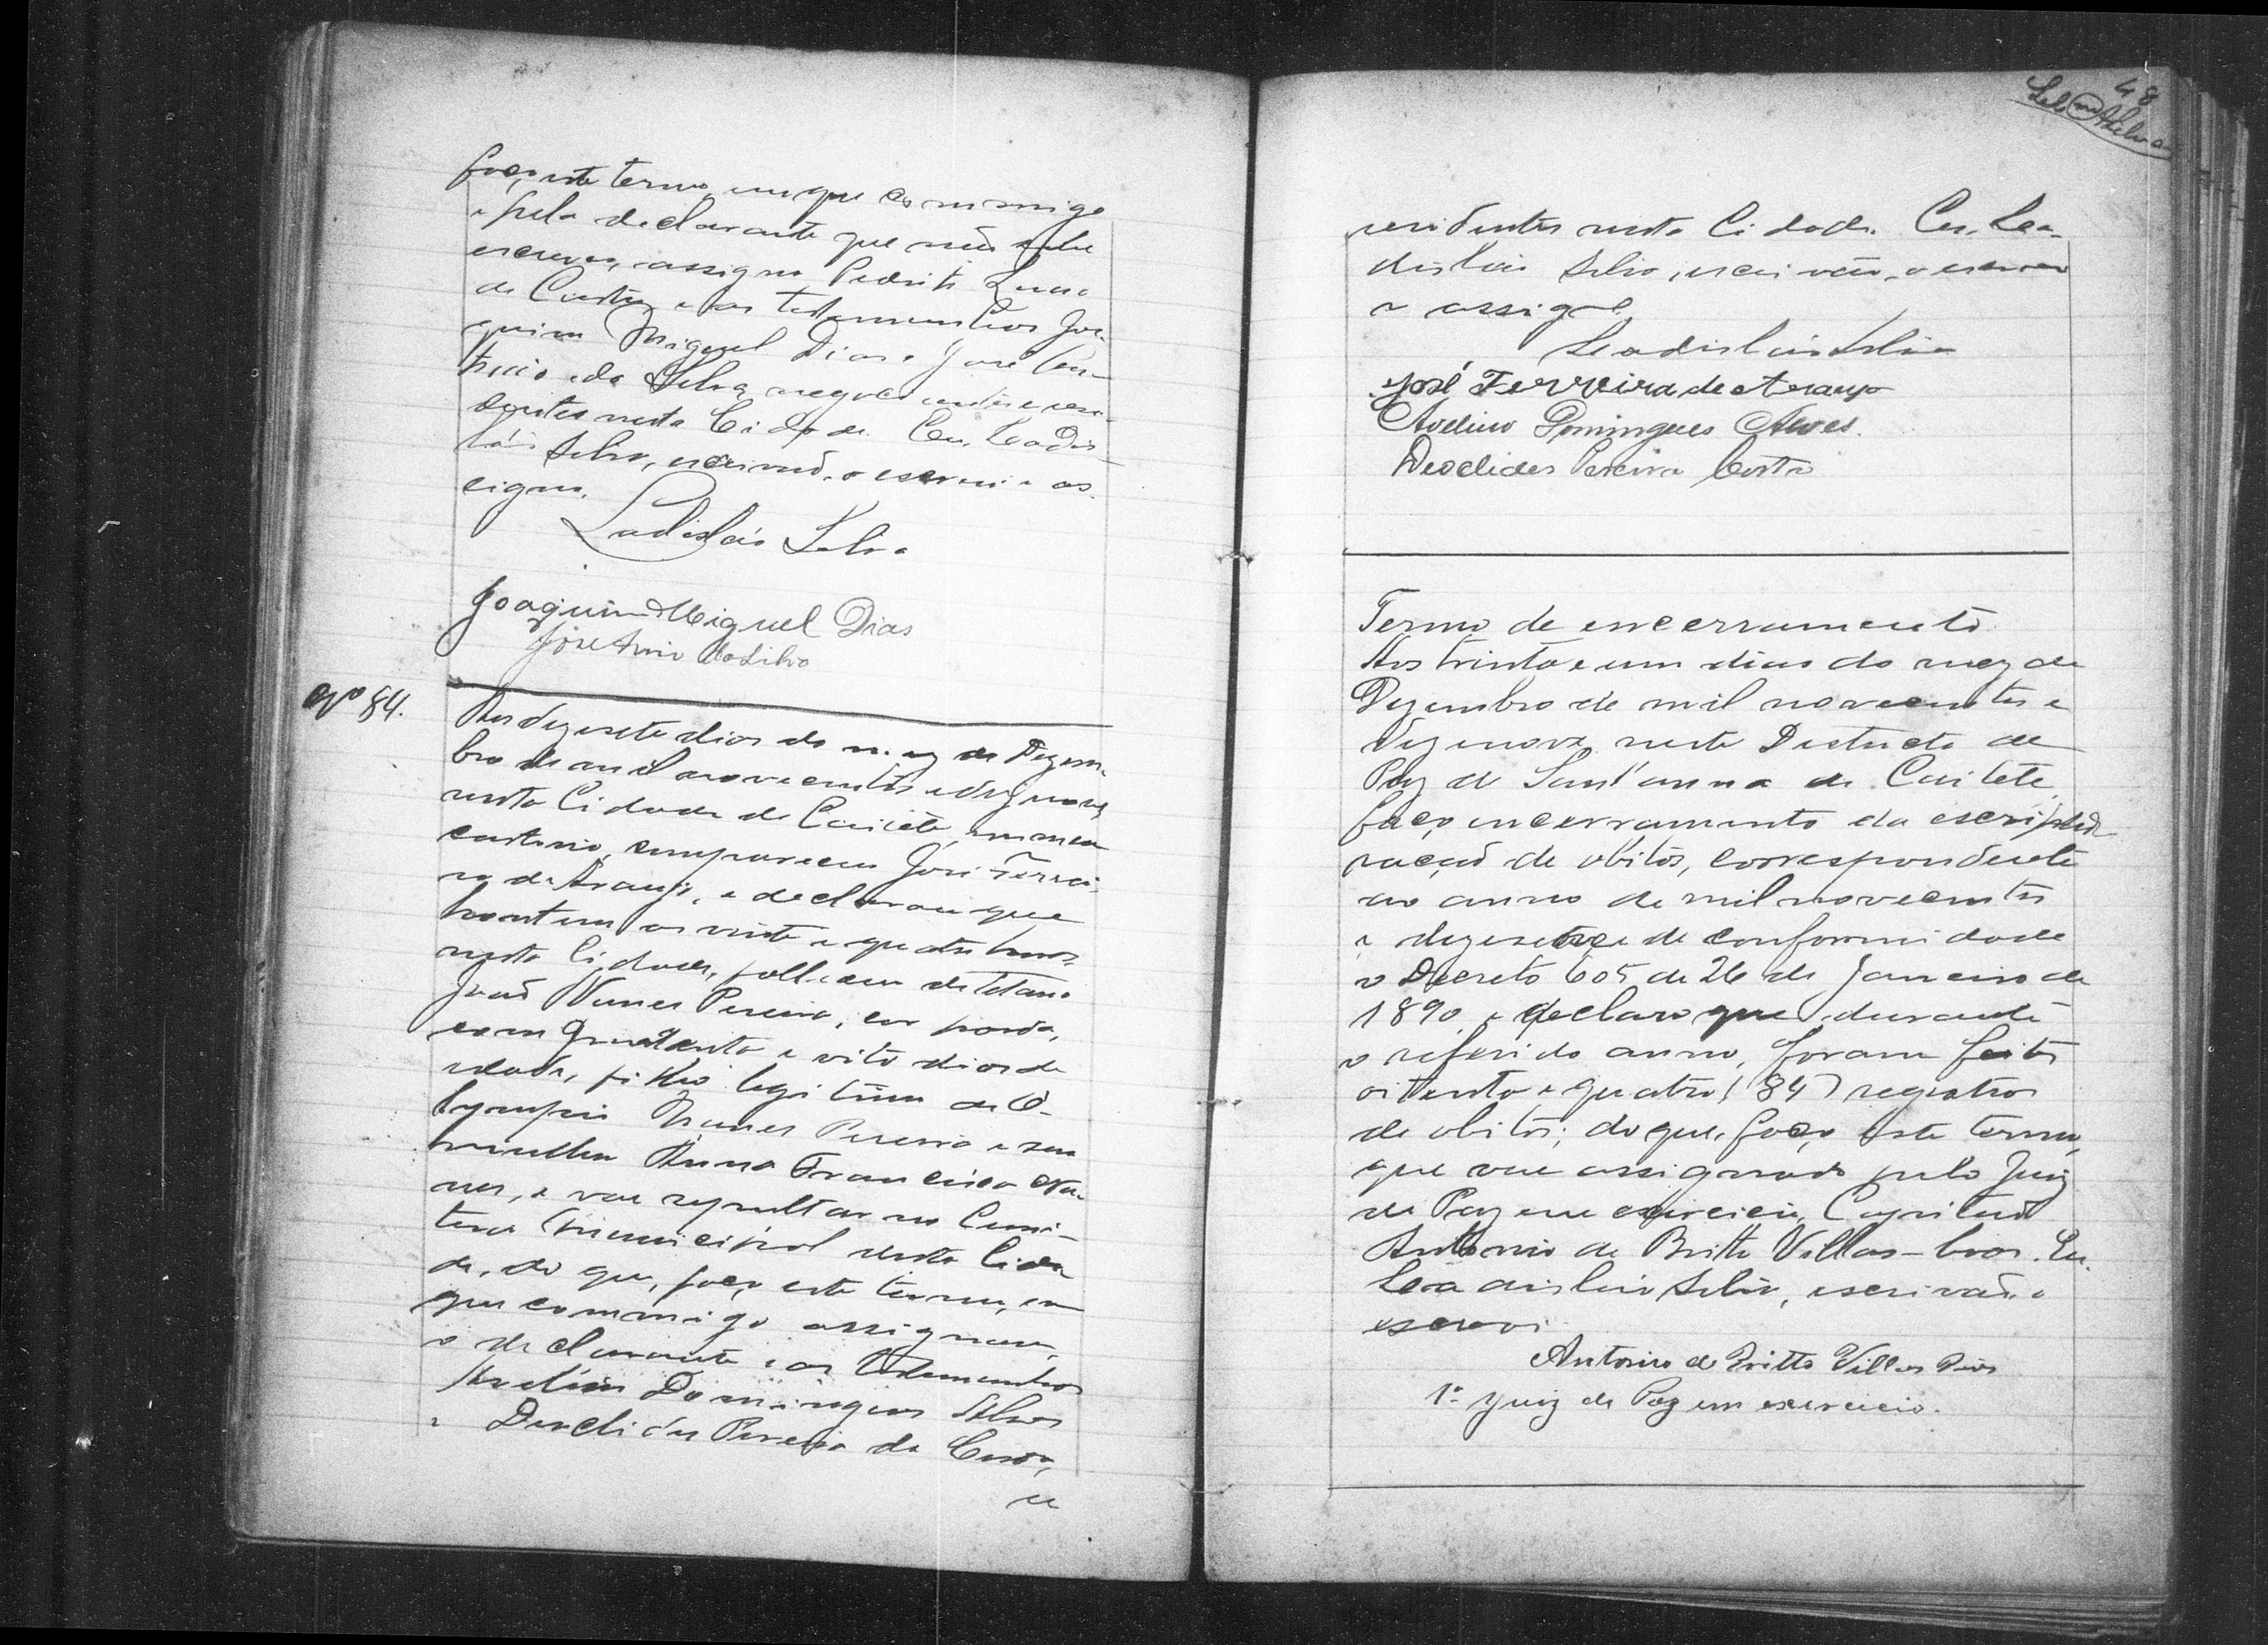 faço, este termo, em que commigo
e pela declarante que não sabe
escrever, assigna Pedrito Lima
de Castro e as testemunhas Joa-
quim Miguel Dias e José
da Silva, negociantes e resi-
dentes nesta Cidade. Eu, Ladis-
láo Silva, escrivão, o escrevi e as-
signo.
Ladisláo Silva
Joaquim Miguel Dias
José da Silva
Nº 84.
Aos dezesete dias do mez de Dezem-
bro de mil novecentos e dezenove,
nesta Cidade de Caiteté, em meu
cartorio, compareceu José Ferrei-
ra de Araujo, e declarou que
hontem as vinte e quatro horas
nesta Cidade, falleceu de tetano
João Nunes Pereira, cor parda,
com e oito dias de
edade, filho legitimo de O-
lympio Nunes Pereira e sua
mulher Anna Francisca Nu-
nes, e vae sepultar no Cemi-
terio Municipal desta Cida
de, do que, faço este termo, em
que commigo assignam,
o declarante e as testemunhas
Avelino Domingues Alves
e Deoclides Pereira da Costa,
residentes nesta Cidade. Eu, La-
disláo Silva, escrivão, o escrevi
e assigno
Ladisláo Silva
José Ferreira de Araujo
Avelino Domingues Alves.
Deoclides Pereira Costa
48
Termo de encerramento
Aos trinta e um dias do mez de
Dezembro de mil novecentos e
dezenove neste Destricto de
Paz de Sant'anna de Caiteté,
faço encerramento da escriptu-
ração de obitos, correspondente
ao anno de mil novecentos
e de conformidade
o Decreto 605 de 26 de Janeiro de
1890, e declaro que durante
o referido anno, foram feitos
oitenta e quatro (84) registros
de obitos; do que, faço este termo,
que vae assignado pelo Juiz
de Paz em exercicio, Capitão
Antonio de Britto Villas-boas. Eu.
Ladisláo Silva, escrivão, o
escrevi
Antonio de Britto Villas Boas
1º Juiz de Paz em exercicio.